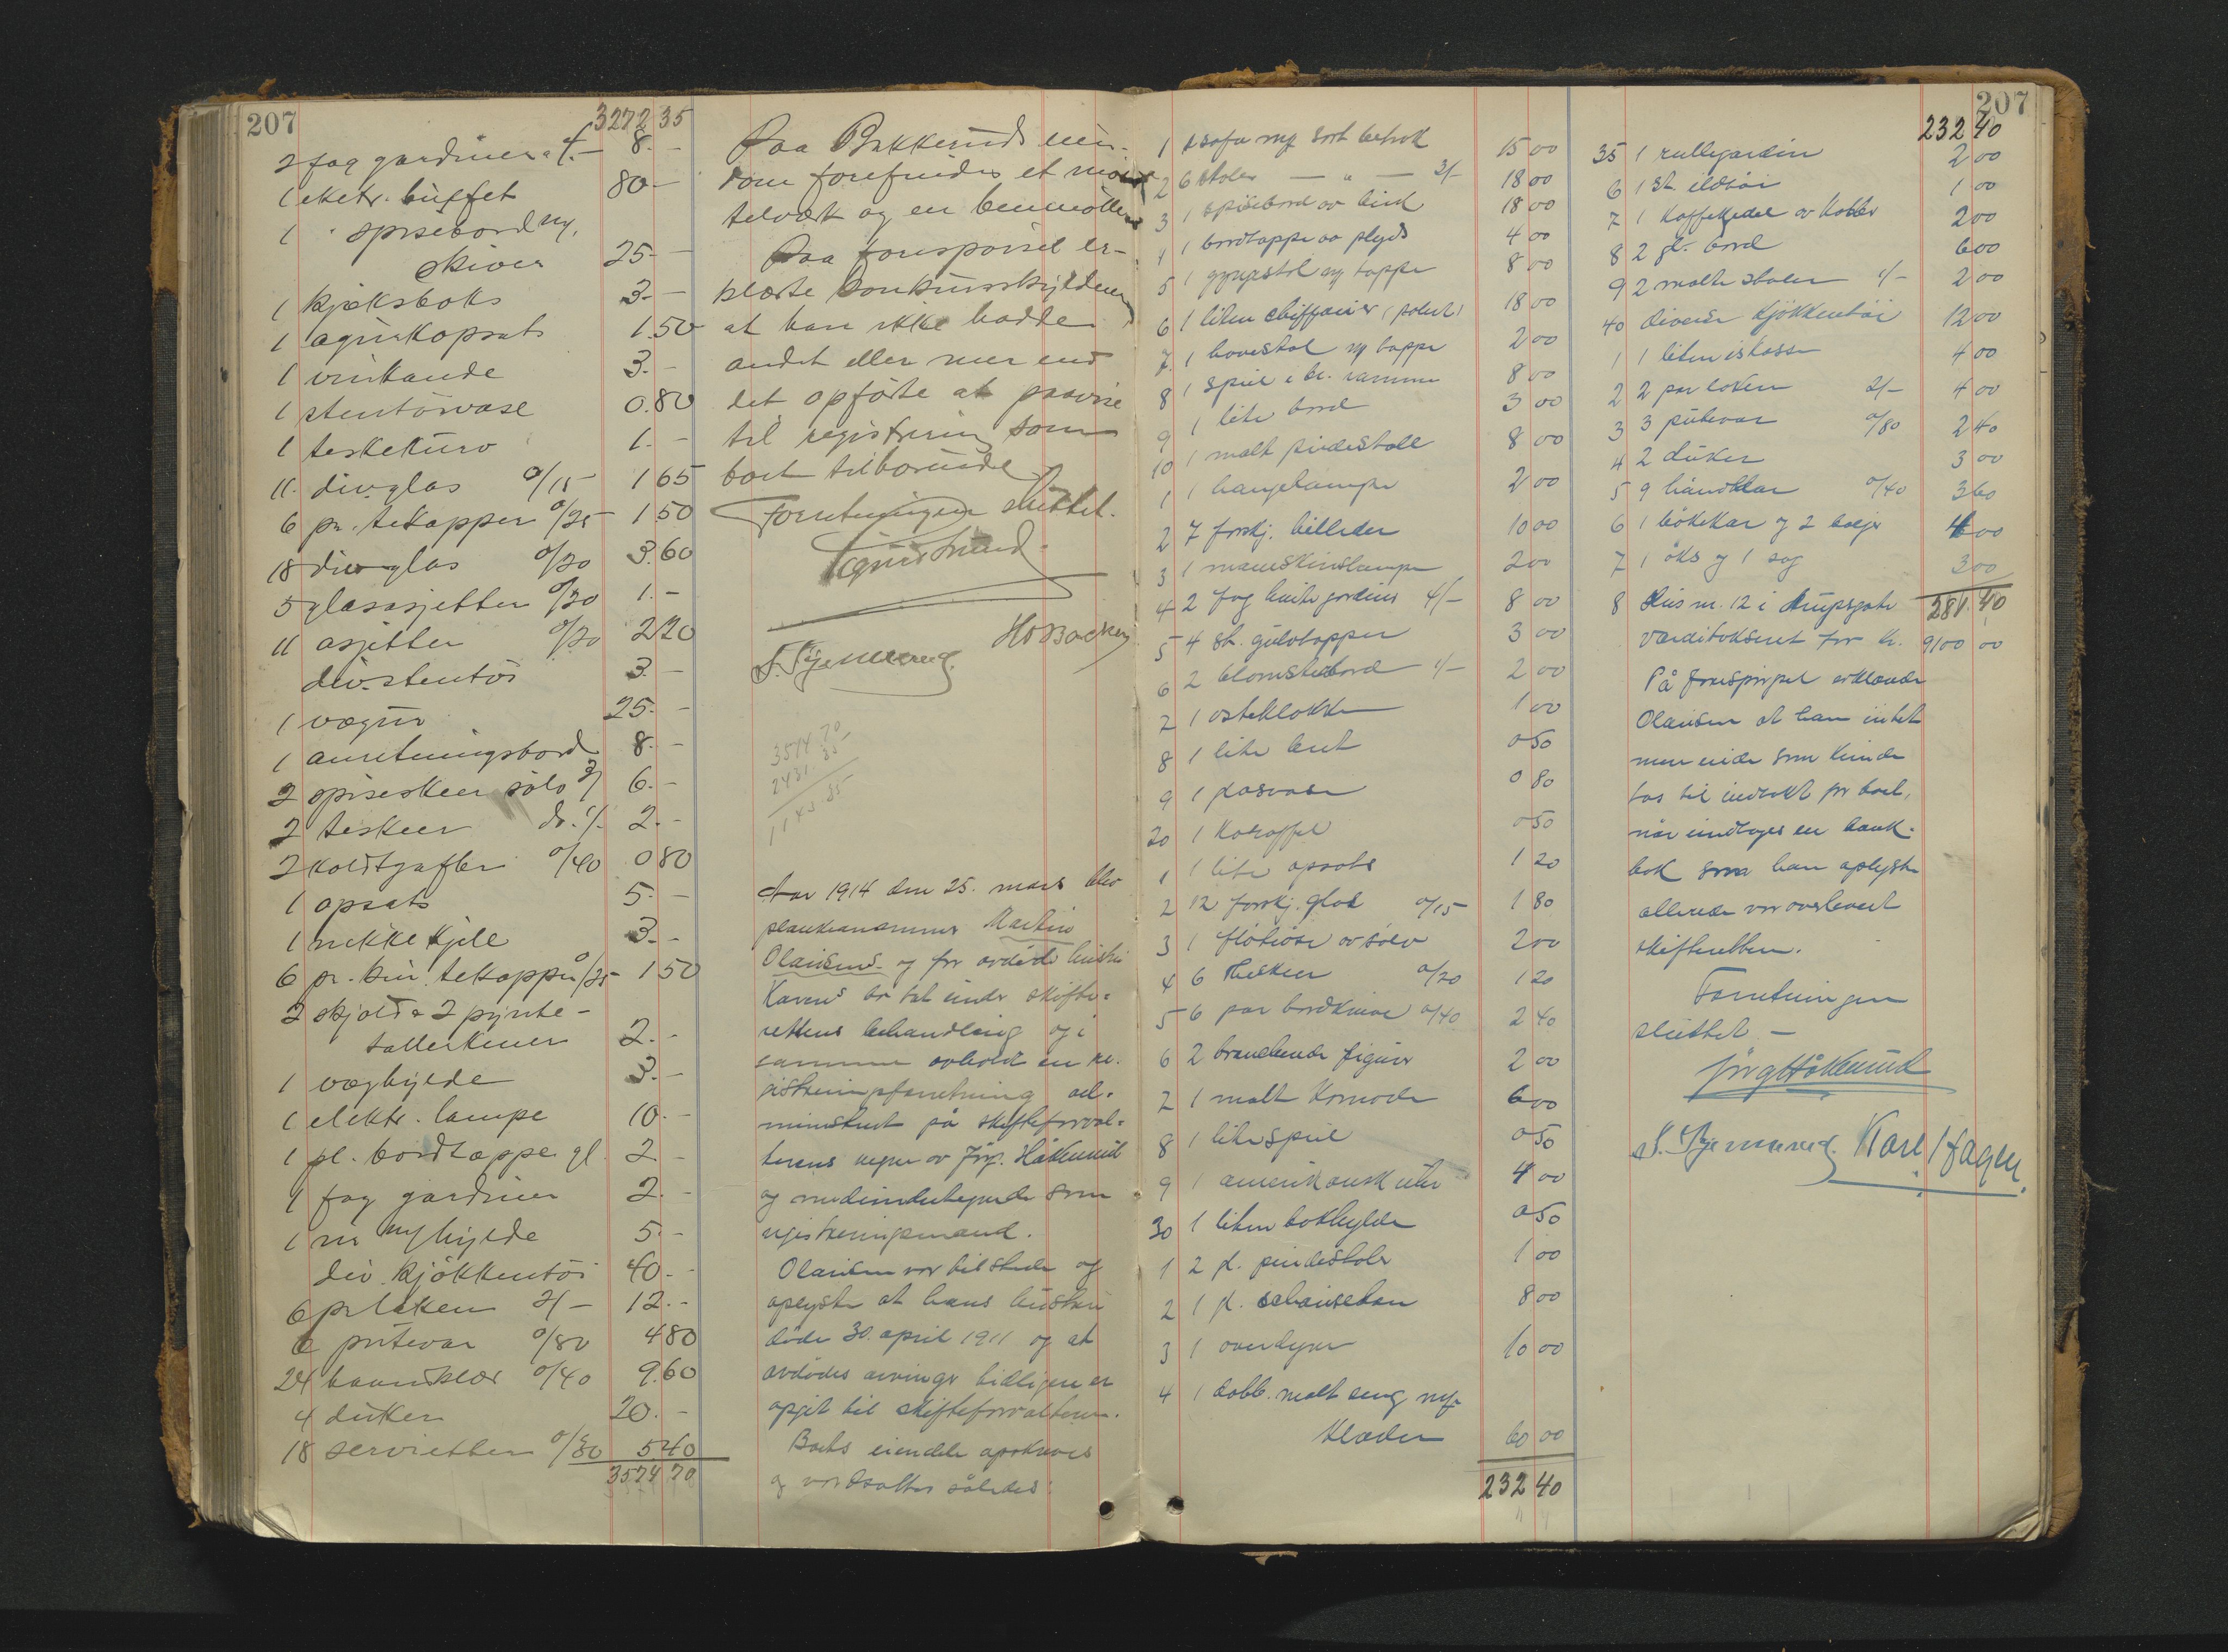 207
3272 35
2 fag gardiner a 4.- 8.-
1 eketr. buffet 80.-
1 " spisebord m/
skiver 25.-
1 kjæksboks 3.-
1 agurkopsats 1.50
1 vinkande 3.-
1 stentöivase 0.80
1 teskekurv 1.-
11 div. glas 0/15 1 65
6 pr. tekopper 0/25 1 50
18 div glas 0/20 3.60
5 glasasjetter 0/20 1.-
11 asjetter 0/20 2 20
div. stentöi 3.-
1 vægur 25.-
1 anretningsbord 8.-
2 spiseskeer sölv 3/ 6.-
2 teskeer do. 1/- 2.-
2 koldtgafler 0/40 0 80
1 opsats 5.-
1 nikkelkjele 3.-
6 pr. kin. tekopper 0/25 1 50
2 skjold & 2 pynte-
tallerkener 2.-
1 væghylde 3.-
1 elektr. lampe 10.-
1 pl. bordtæppe gl. 2.-
1 fag gardiner 2.-
1 hylde 5.-
div. kjökkentöi 40.-
6 pr laken 2/- 12.-
6 putevar 0/80 4 80
24 haandklær 0/40 9.60
4 duker 20.-
18 servietter 0/30 5.40
3574 70
Paa Bakkerud eien-
dom forefindes et
telværk og en benmölle
Paa forespörsel er-
klærte konkursskyldneren
at han ikke hadde
andet eller mer end
det opförte at paavise
til registrering som
boet tilhörende
Forretningen sluttet.
Sigurd
H. Backer
S. Stjernerud.
3574 70
2431. 35
1143 35
Aar 1914 den 25. mars blev
plankeanammer Martin
Olausens og for avdöde hustru
Karens bo tat under skifte-
rettens behandling og i
samme avholdt en re-
gistreringsforretning ad-
ministrert på skifteforval-
terens vegne av Jörg. Håkerud
og medundertegnede som
registreringsmænd.
Olausen var tilstede og
oplyste at hans hustru
döde 30. april 1911 og at
avdödes arvinger tidligere er
opgit til skifteforvalteren.
Boets eiendele opskreves
og værdsattes således:
1 1 sofa m/ sort betræk 15 00
2 6 stoler — " — 3/- 18 00
3 1 spisebord av birk 18 00
4 1 bordtæppe av plyds 4 00
5 1 gyngestol m/ tæppe 8 00
6 1 liten chiffonier (polert) 18 00
7 1 hovestol m/ tæppe 2 00
8 1 speil i br. ramme 8 00
9 1 lite bord 3 00
10 1 malt pindestoll 8 00
1 1 hængelampe 2 00
2 7 forskj. billeder 10 00
3 1 maaneskinslampe 2 00
4 2 fag hvite gardiner 4/- 8 00
5 4 st. gulvtæpper 3 00
6 2 blomsterbord 1/- 2 00
7 1 osteklokke 1 00
8 1 lite bret 0 50
9 1 glasvase 0 80
20 1 karaffel 0 50
1 1 lite opsats 1 20
2 12 forskj. glas 0/15 1 80
3 1 flöteöse av sölv 2 00
4 6 theskeer 0/20 1 20
5 6 par bordkniver 0/40 2 40
6 2 brændende figurer 2 00
7 1 malt komode 6 00
8 1 lite speil 0 50
9 1 amerikansk uhr 4 00
30 1 liten bokhylde 0 50
1 2 gl. pindestoler 1 00
2 1 gl. schaiselon 8 00
3 1 overdyne 10 00
4 1 dobb. malt seng m/
klæder 60 00
232 40
207
232 40
35 1 rullegardin 2 00
6 1 st. ildtöi 1 00
7 1 kaffekjedel av kobber 2 00
8 2 gl. bord 6 00
9 2 malte stoler 1/- 2 00
40 diverse kjökkentöi 12 00
1 1 liten iskasse 4 00
2 2 par laken 2/- 4 00
3 3 putevar 0/80 2 40
4 2 duker 3 00
5 9 håndklær 0/40 3 60
6 1 bökekar og 2 baljer 4 00
7 1 öks og 1 sag 3 00
8 Hus nr. 12 i Krupsgate 281 40
værditakseret for kr. 9100 00
På forespörsel erklærede
Olausen at han intet
mere eiede som kunde
tas til indtekt for boet,
når undtages en bank-
bok som han oplyste
allerede var overlevert
skifteretten.
Forretningen
sluttet —
Jörg Håkerud
S. Stjernerud. Karl Hagen.